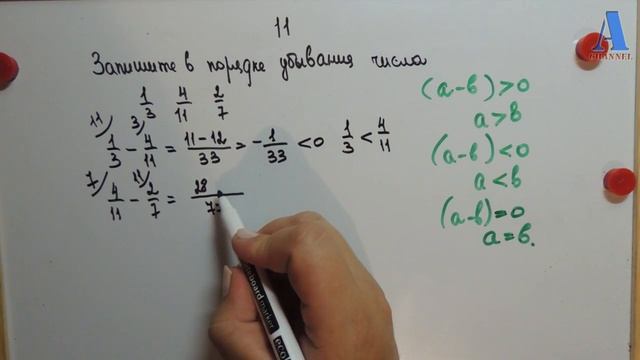 11
Запишите в порядке убывания числа
1/3 4/11 2/7
11) 3) 1/3 - 4/11 = (11-12)/33 = -1/33 < 0 1/3 < 4/11
7) 11) 4/11 - 2/7 = 28/77
(a-b)>0
a>b
(a-b)<0
a<b
(a-b)=0
a=b.
A
CHANNEL